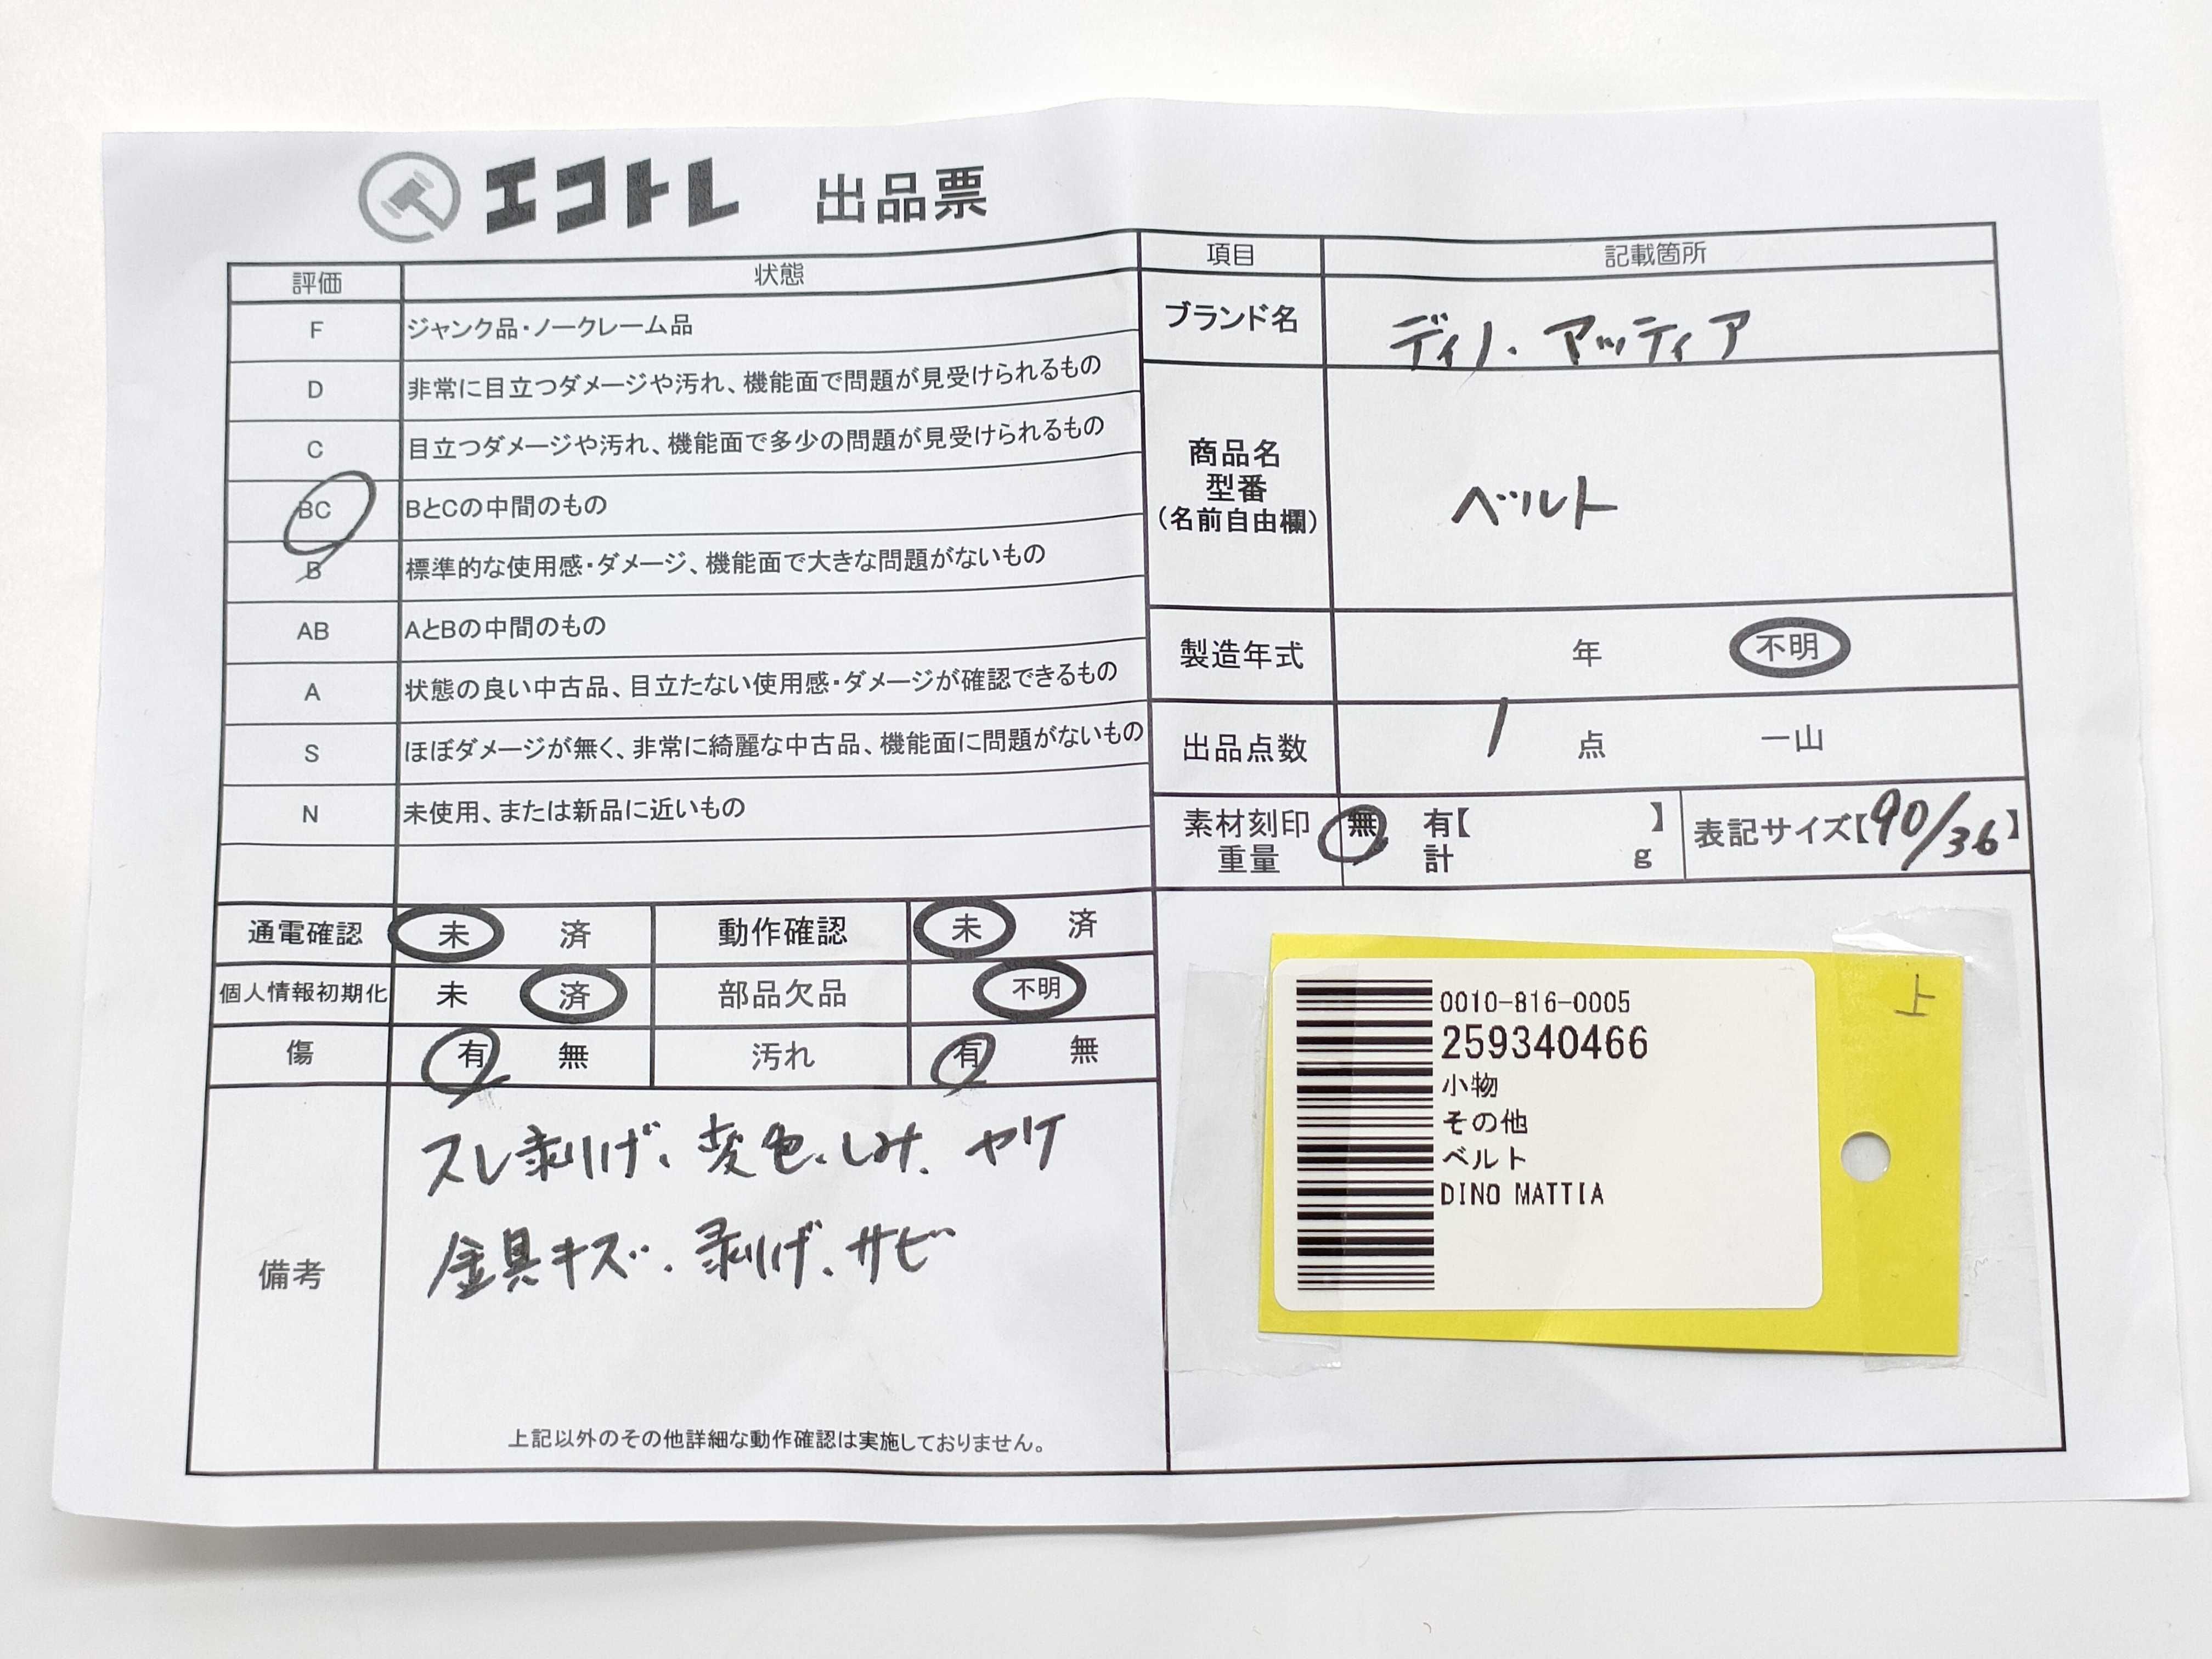 エコトレ 出品票
評価 状態
F ジャンク品・ノークレーム品
D 非常に目立つダメージや汚れ、機能面で問題が見受けられるもの
C 目立つダメージや汚れ、機能面で多少の問題が見受けられるもの
BC BとCの中間のもの
B 標準的な使用感・ダメージ、機能面で大きな問題がないもの
AB AとBの中間のもの
A 状態の良い中古品、目立たない使用感・ダメージが確認できるもの
S ほぼダメージが無く、非常に綺麗な中古品、機能面に問題がないもの
N 未使用、または新品に近いもの
通電確認 未 済 動作確認 未 済
個人情報初期化 未 済 部品欠品 不明
傷 有 無 汚れ 有 無
備考
スレ剥げ、変色、しみ、ヤケ
金具キズ、剥げ、サビ
上記以外のその他詳細な動作確認は実施しておりません。
項目 記載箇所
ブランド名 ディノ・マッティア
商品名
型番
(名前自由欄)
ベルト
製造年式 年 不明
出品点数 1 点 一山
素材刻印 無 有【 】
重量 計 g
表記サイズ【90/36】
上
0010-816-0005
259340466
小物
その他
ベルト
DINO MATTIA